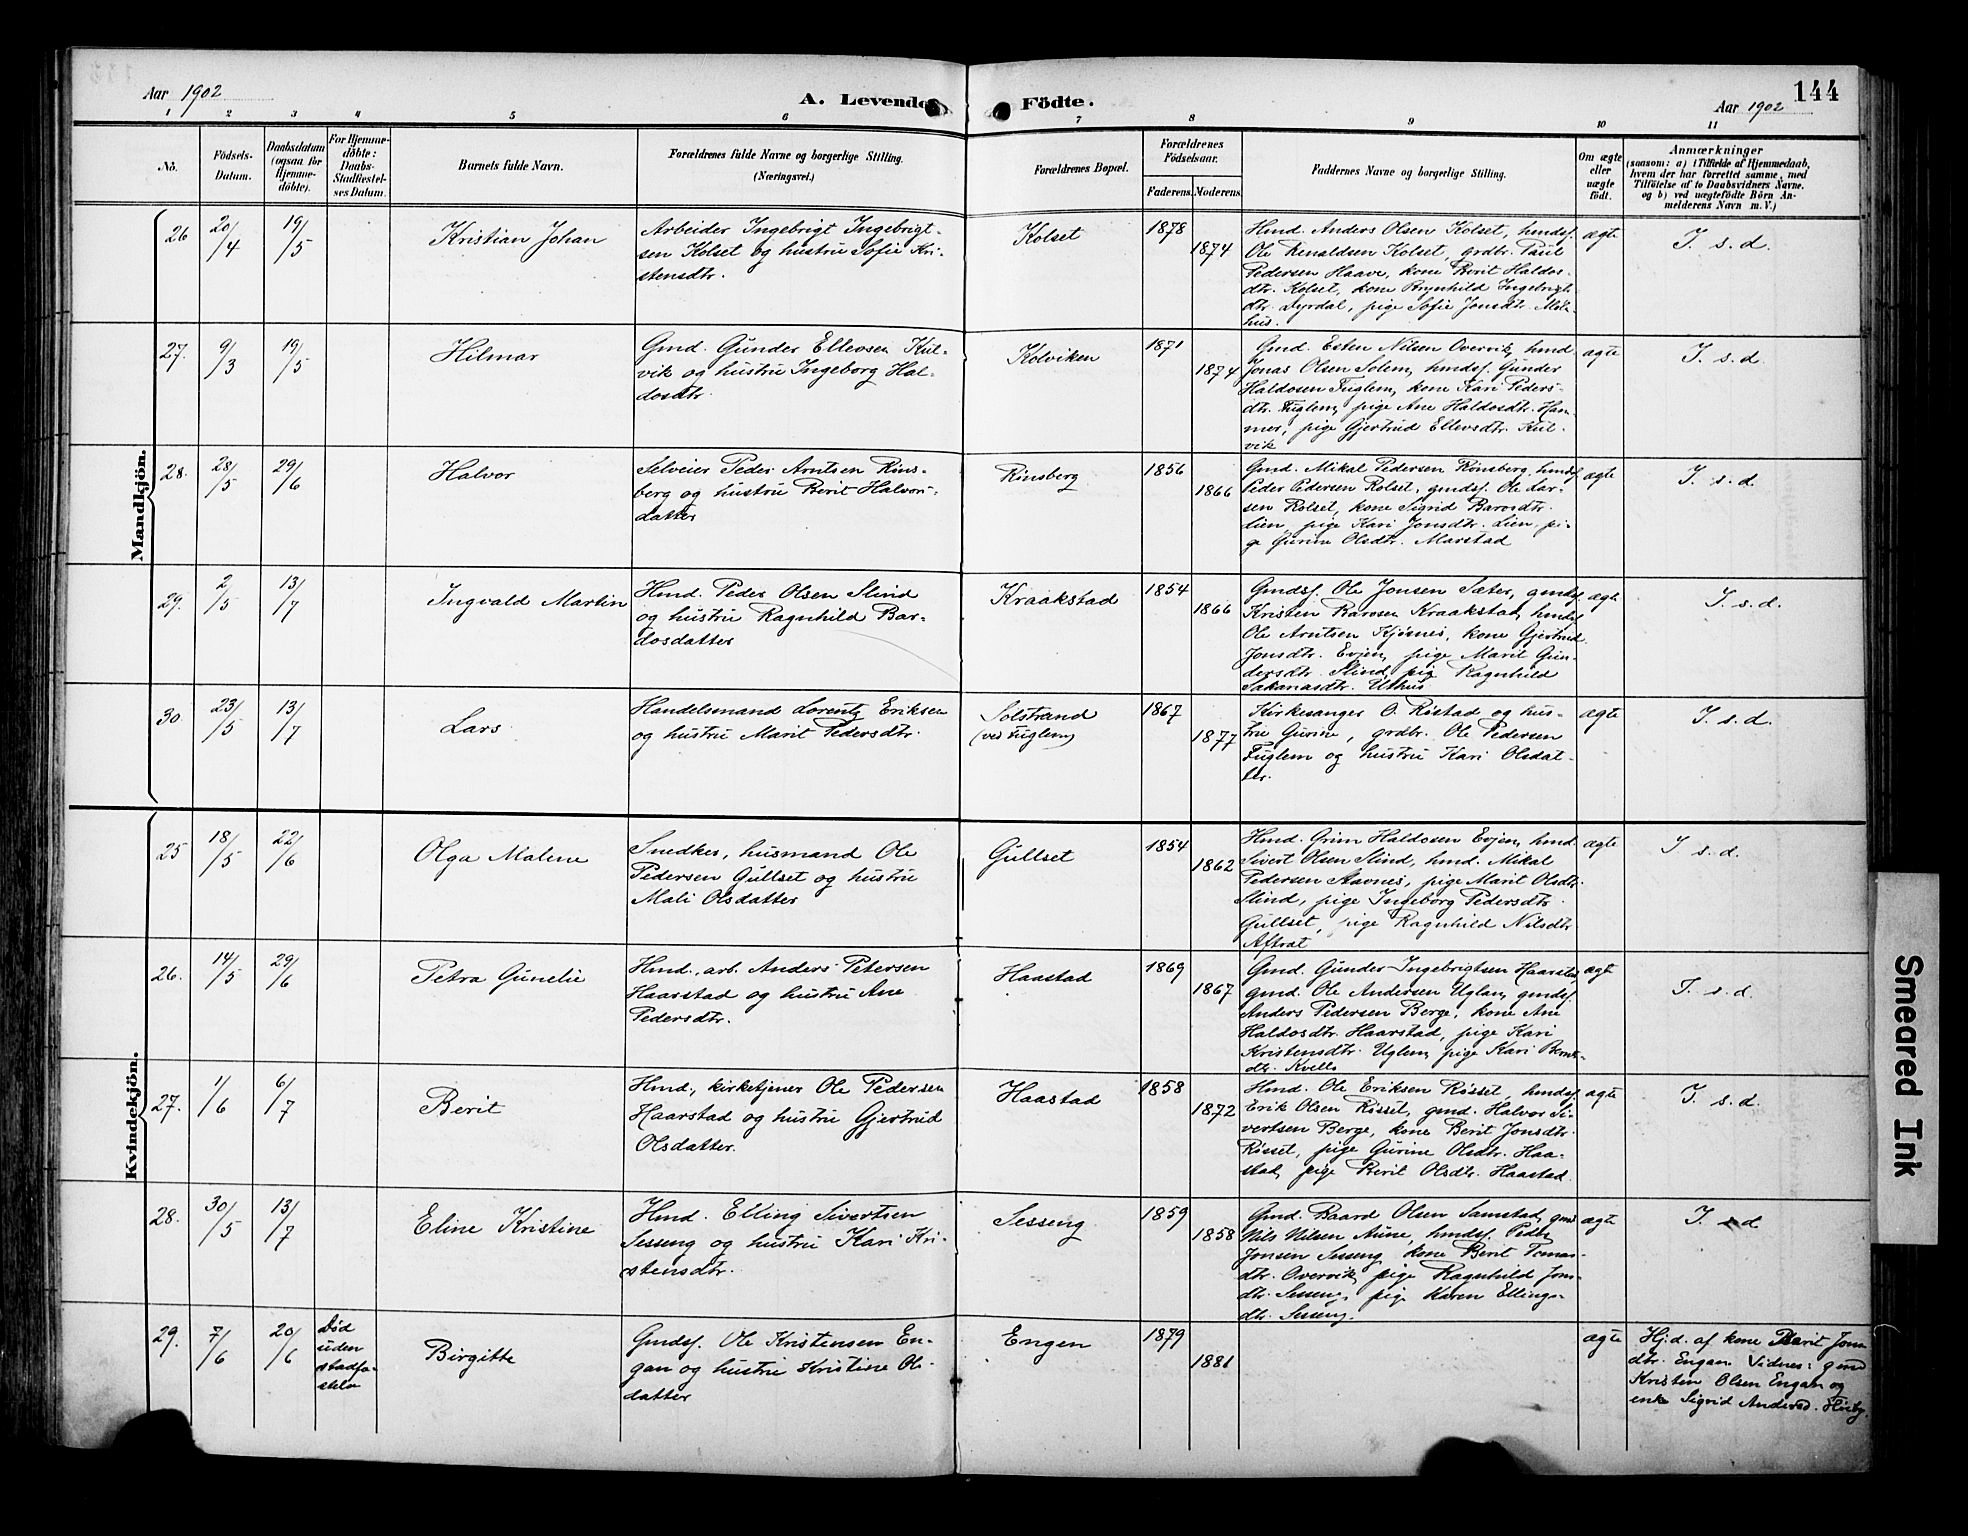 Aar 1902
A. Levende Födte.
Aar 1902
144
1 2 3 4 5 6 7 8 9 10 11
No.
Födsels-
Datum.
Daabsdatum
(ogsaa för
Hjemme-
döbte).
For Hjemme-
döbte:
Daabs-
Stadfæstel-
ses Datum.
Barnets fulde Navn.
Forældrenes fulde Navne og borgerlige Stilling.
(Næringsvei.)
Forældrenes Bopæl.
Forældrenes
Födselsaar.
Faderens. Moderens.
Faddernes Navne og borgerlige Stilling.
Om ægte
eller
uægte
födt.
Anmærkninger
(saasom: a) i Tilfælde af Hjemmedaab,
hvem der har forrettet samme, med
Tilföielse af to Daabsvidners Navne,
og b) ved uægtefödte Börn An-
melderens Navn m. V.)
Mandkjön.
26
20/4
19/5
Kristian Johan
Arbeider Ingebrigt Ingebrigt-
sen Kolset og hustru Sofie Kri-
stensdtr.
Kolset
1878
1874
Hmd. Anders Olsen Kolset, hmdsf.
Ole Renaldsen Kolset, grdbr. Paul
Pedersen Haave, kone Berit Haldos-
dtr. Kolset, kone Brynhild Ingebrigt-
dtr. Dyrdal, pige Sofie Jonsdtr. Mel-
hus.
ægte
I. s. d.
27.
9/3
19/5
Hilmar
Gmd. Gunder Ellevsen Kul-
vik og hustru Ingeborg Hal-
dosdtr.
Kolviken
1871
1874
Gmd. Esten Nilsen Overvik, hmd.
Jonas Olsen Solem, hmdsf. Gunder
Haldosen Fuglem, kone Kari Peders-
dtr. Fuglem, pige Ane Haldosdtr. Ham-
mer, pige Gjertrud Ellevsdtr. Kul-
vik
ægte
I. s. d.
28.
28/5
29/6
Halvor
Selveier Peder Arntsen Rins-
berg og hustru Berit Halvors-
datter
Rinsberg
1856
1866
Gmd. Mikal Pedersen Rønsberg, hmdsf.
Peder Pedersen Rolset, gmdsf. Ole Lar-
sen Rolset, kone Sigrid Barosdtr.
Lien, pige Kari Jonsdtr. Lien, pi-
ge Gurine Olsdtr. Marstad
ægte
I. s. d.
29.
2/5
13/7
Ingvald Martin
Hmd. Peder Olsen Slind
og hustru Ragnhild Bar-
dosdatter
Kraakstad
1854
1866
Gmdsf. Ole Jonsen Sæter, gmdsf.
Kristen Barosen Kraakstad, hmdsf.
Ole Arntsen Kjøsnes, kone Gjertrud
Jonsdtr. Evjen, pige Marit Gun-
dersdtr. Slind, pig Ragnhild
Sakariasdtr. Uthus
ægte
I. s. d.
30.
23/5
13/7
Lars
Handelsmand Lorentz Eriksen
og hustru Marit Pedersdtr.
Solstrand
(ved Fuglem)
1867
1877
Kirkesanger O. Røstad og hus-
tru Gurine, grdbr. Ole Pedersen
Fuglem og hustru Kari Olsdat-
ter.
ægte
I. s. d.
Kvindekjön.
25
18/5
22/6
Olga Malene
Snedker, husmand Ole
Pedersen Gullset og hustru
Mali Olsdatter
Gullset
1854
1862
Hmd. Grim Haldosen Evjen, hmd.
Sivert Olsen Slind, hmd. Mikal
Pedersen Stavnes, pige Marit Olsdtr.
Slind, pige Ingeborg Pedersdtr.
Gullset, pige Ragnhild Nilsdtr.
Aftret
ægte
I s. d.
26.
14/5
29/6
Petra Gunelie
Hmd., arb. Anders Petersen
Haarstad og hustru Ane
Pedersdtr.
Haastad
1869
1867
Gmd. Gunder Ingebrigtsen Haarstad,
gmd. Ole Andersen Uglan, gmdsf.
Anders Pedersen Berge, kone Ane
Haldosdtr. Haarstad, pige Kari
Kristensdtr. Uglem, pige Kari Bernt-
dtr. Kvello
ægt
I. s. d.
27.
1/6
6/7
Berit
Hmd., kirketjener Ole Pedersen
Haarstad og hustru Gjertrud
Olsdatter.
Haastad
1858
1872
Hmd. Ole Eriksen Røsset, hmdsf.
Erik Olsen Røsset, gmd. Halvor Si-
vertsen Berge, kone Berit Jonsdtr.
Røsset, pige Gurine Olsdtr. Haa-
stad, pige Berit Olsdtr. Haastad.
ægte
I. s. d.
28.
30/5
13/7
Eline Kristine
Hmd. Elling Sivertsen
Sesseng og hustru Kari Kri-
stensdtr.
Sesseng
1859
1858
Gmd. Baard Olsen Samstad, gmd
Nils Nilsen Aune, hmdsf. Peder
Jonsen Sesseng, kone Berit Tomas-
dtr. Overvik, pige Ragnhild Jons-
dtr. Sesseng, pige Karen Ellings-
dtr. Sesseng.
ægte
I. s d
29.
7/6
20/6
Død
uden
stadfæ-
stelse
Birgitte
Gmdsf. Ole Kristensen En-
gan og hustru Kristine Ols-
datter
Engen
1879
1881
ægte
Hj.d. af kone Berit Jons
dtr. Engan Vidner: gmd
Kristen Olsen Engan og
enke Sigrid Andersd. Huseby.
Smeared Ink